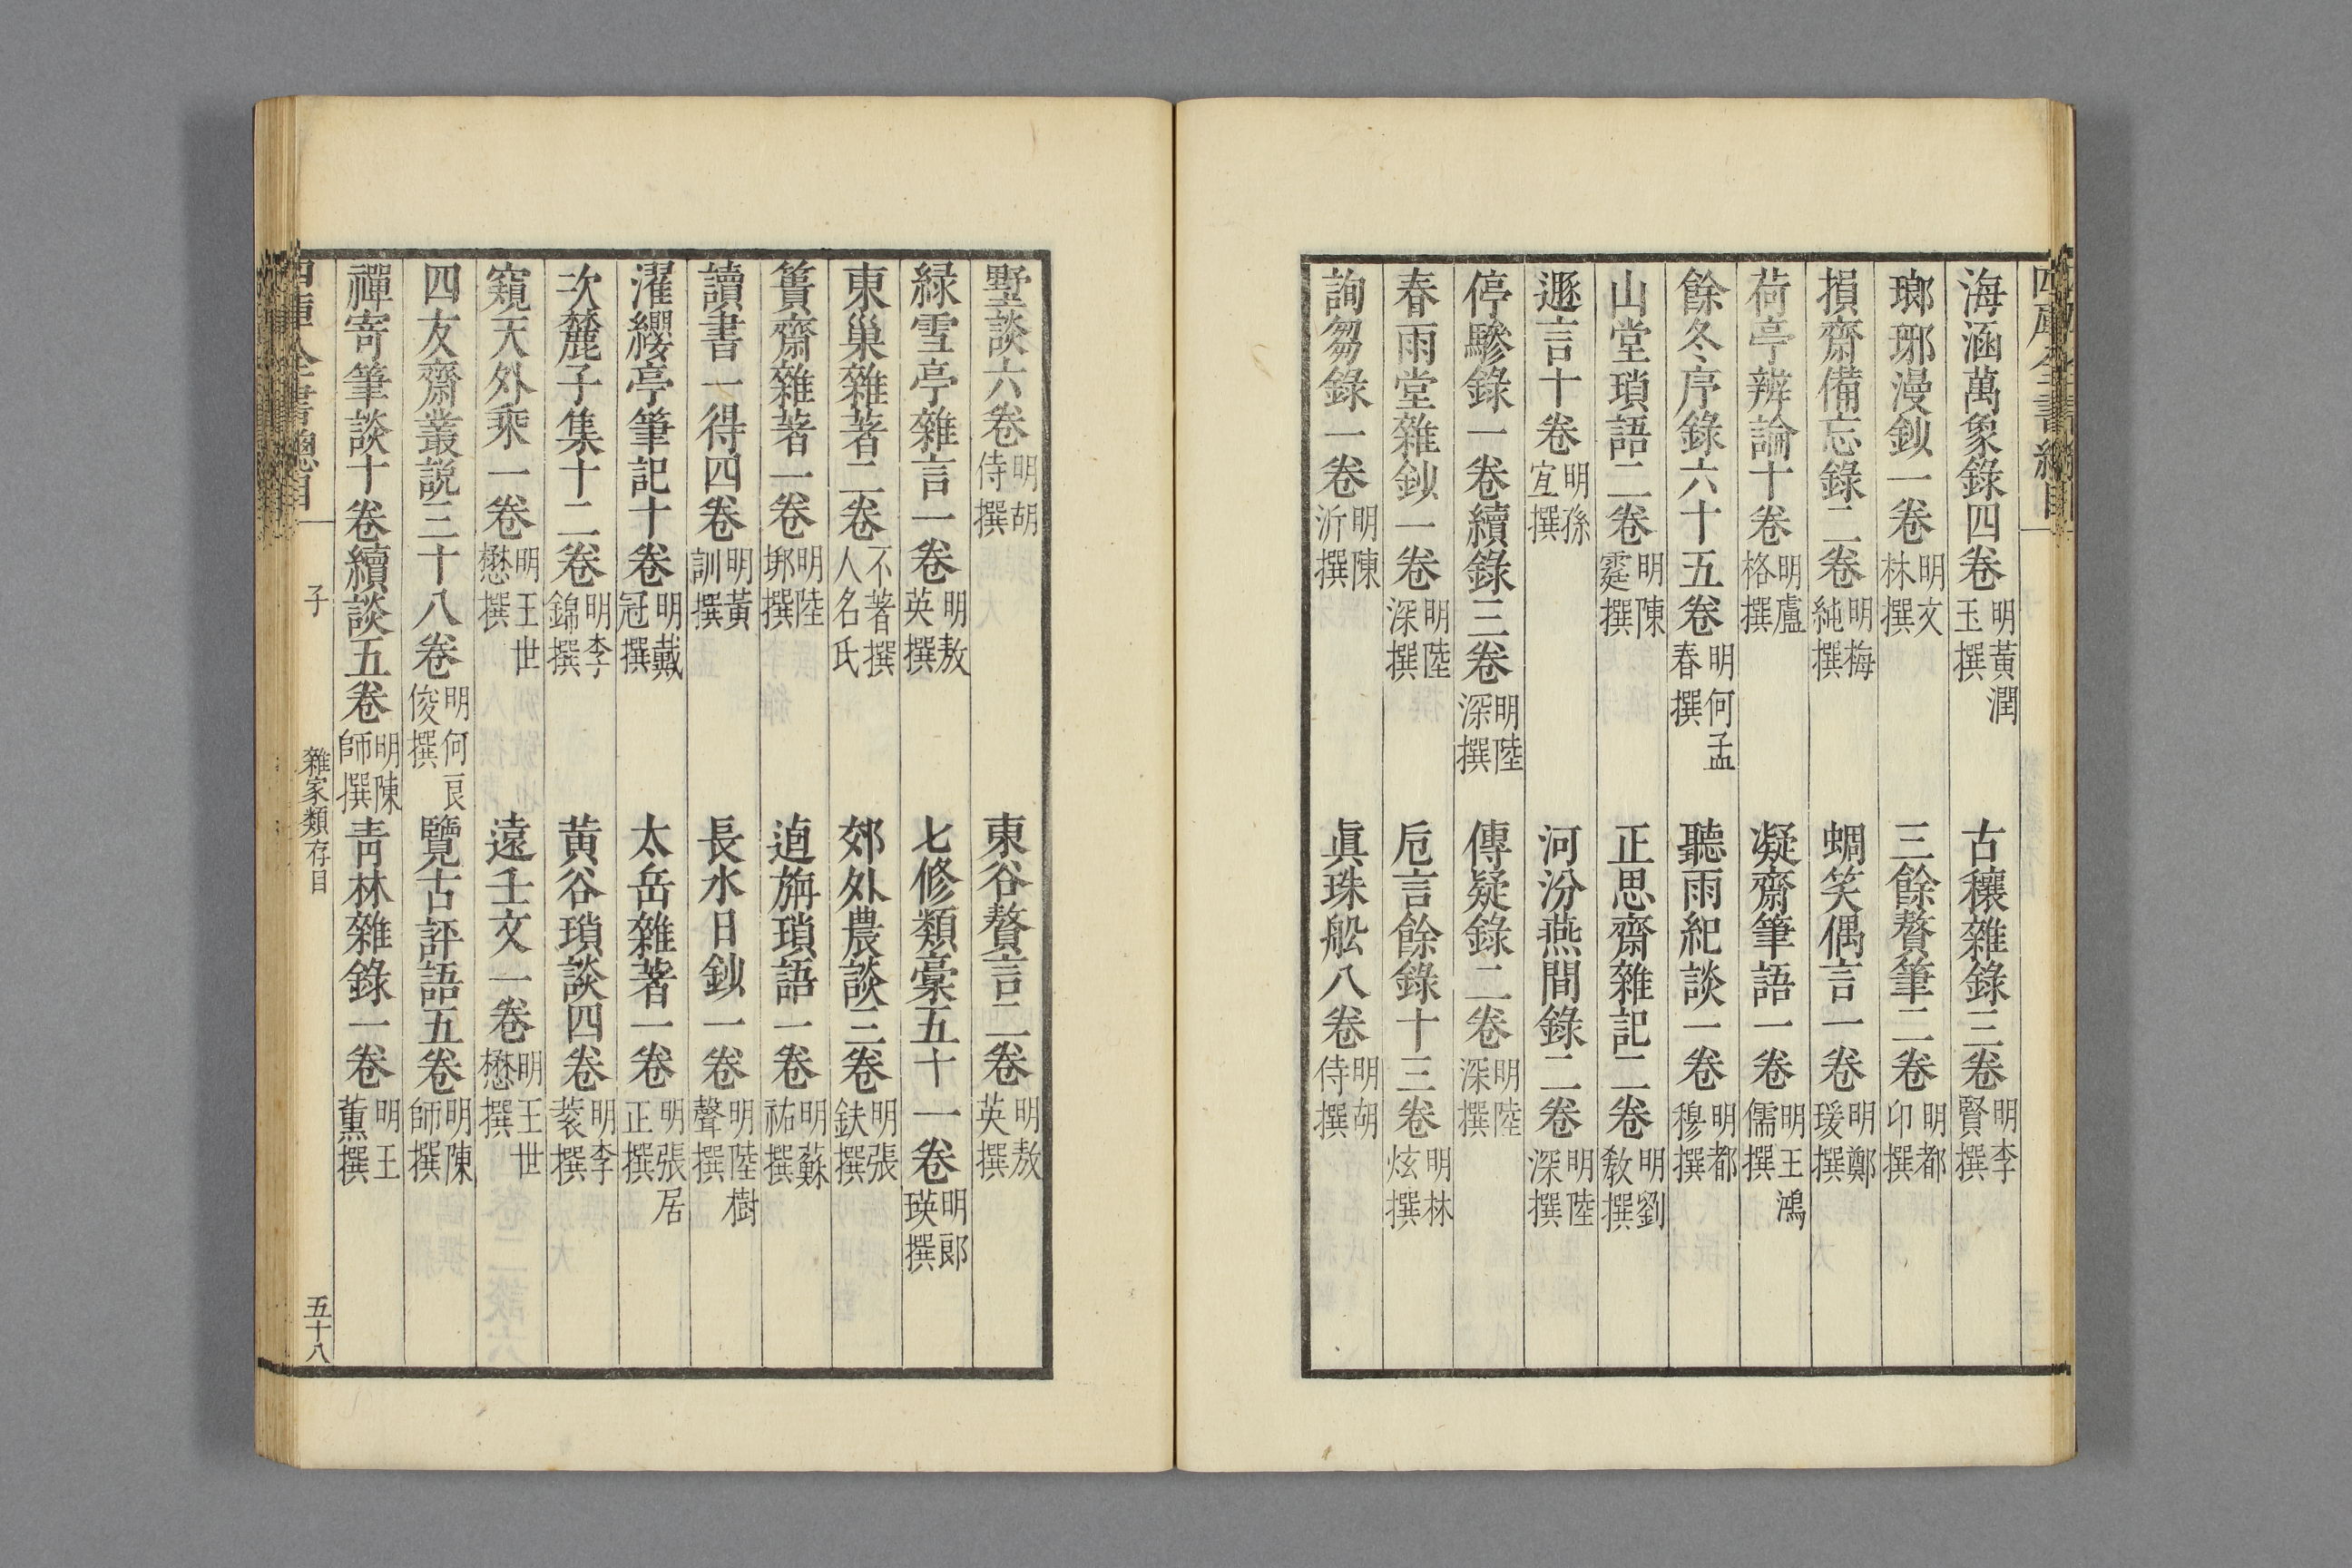 海涵萬象錄四卷明黃潤玉撰 古穰雜錄三卷明李賢撰
瑯琊漫鈔一卷明文林撰 三餘贅筆二卷明都卬撰
損齋備忘錄二卷明梅純撰 蜩笑偶言一卷明鄭瑗撰
荷亭辨論十卷明盧格撰 凝齋筆語一卷明王鴻儒撰
餘冬序錄六十五卷明何孟春撰 聽雨紀談一卷明都穆撰
山堂瑣語二卷明陳霆撰 正思齋雜記二卷明劉敎撰
遯言十卷明孫宜撰 河汾燕閒錄二卷明陸深撰
停驂錄一卷續錄三卷明陸深撰 傳疑錄二卷明陸深撰
春雨堂雜鈔一卷明陸深撰 卮言餘錄十三卷明林炫撰
詢芻錄一卷明陳沂撰 眞珠船八卷明胡侍撰
墅談六卷明胡侍撰 東谷贅言二卷明敖英撰
綠雪亭雜言一卷明敖英撰 七修類藁五十一卷明郎瑛撰
東巢雜著二卷不著撰人名氏 郊外農談三卷明張鈇撰
篔齋雜著一卷明陸垹撰 逌旃瑣語一卷明蘇祐撰
讀書一得四卷明黃訓撰 長水日鈔一卷明陸樹聲撰
濯纓亭筆記十卷明戴冠撰 太岳雜著一卷明張居正撰
次麓子集十二卷明李錦撰 黃谷瑣談四卷明李蓘撰
窺天外乘一卷明王世懋撰 遠壬文一卷明王世懋撰
四友齋叢說三十八卷明何良俊撰 覽古評語五卷明陳師撰
禪寄筆談十卷續談五卷明陳師撰 靑林雜錄一卷明王薰撰
子 雜家類存目 五十八